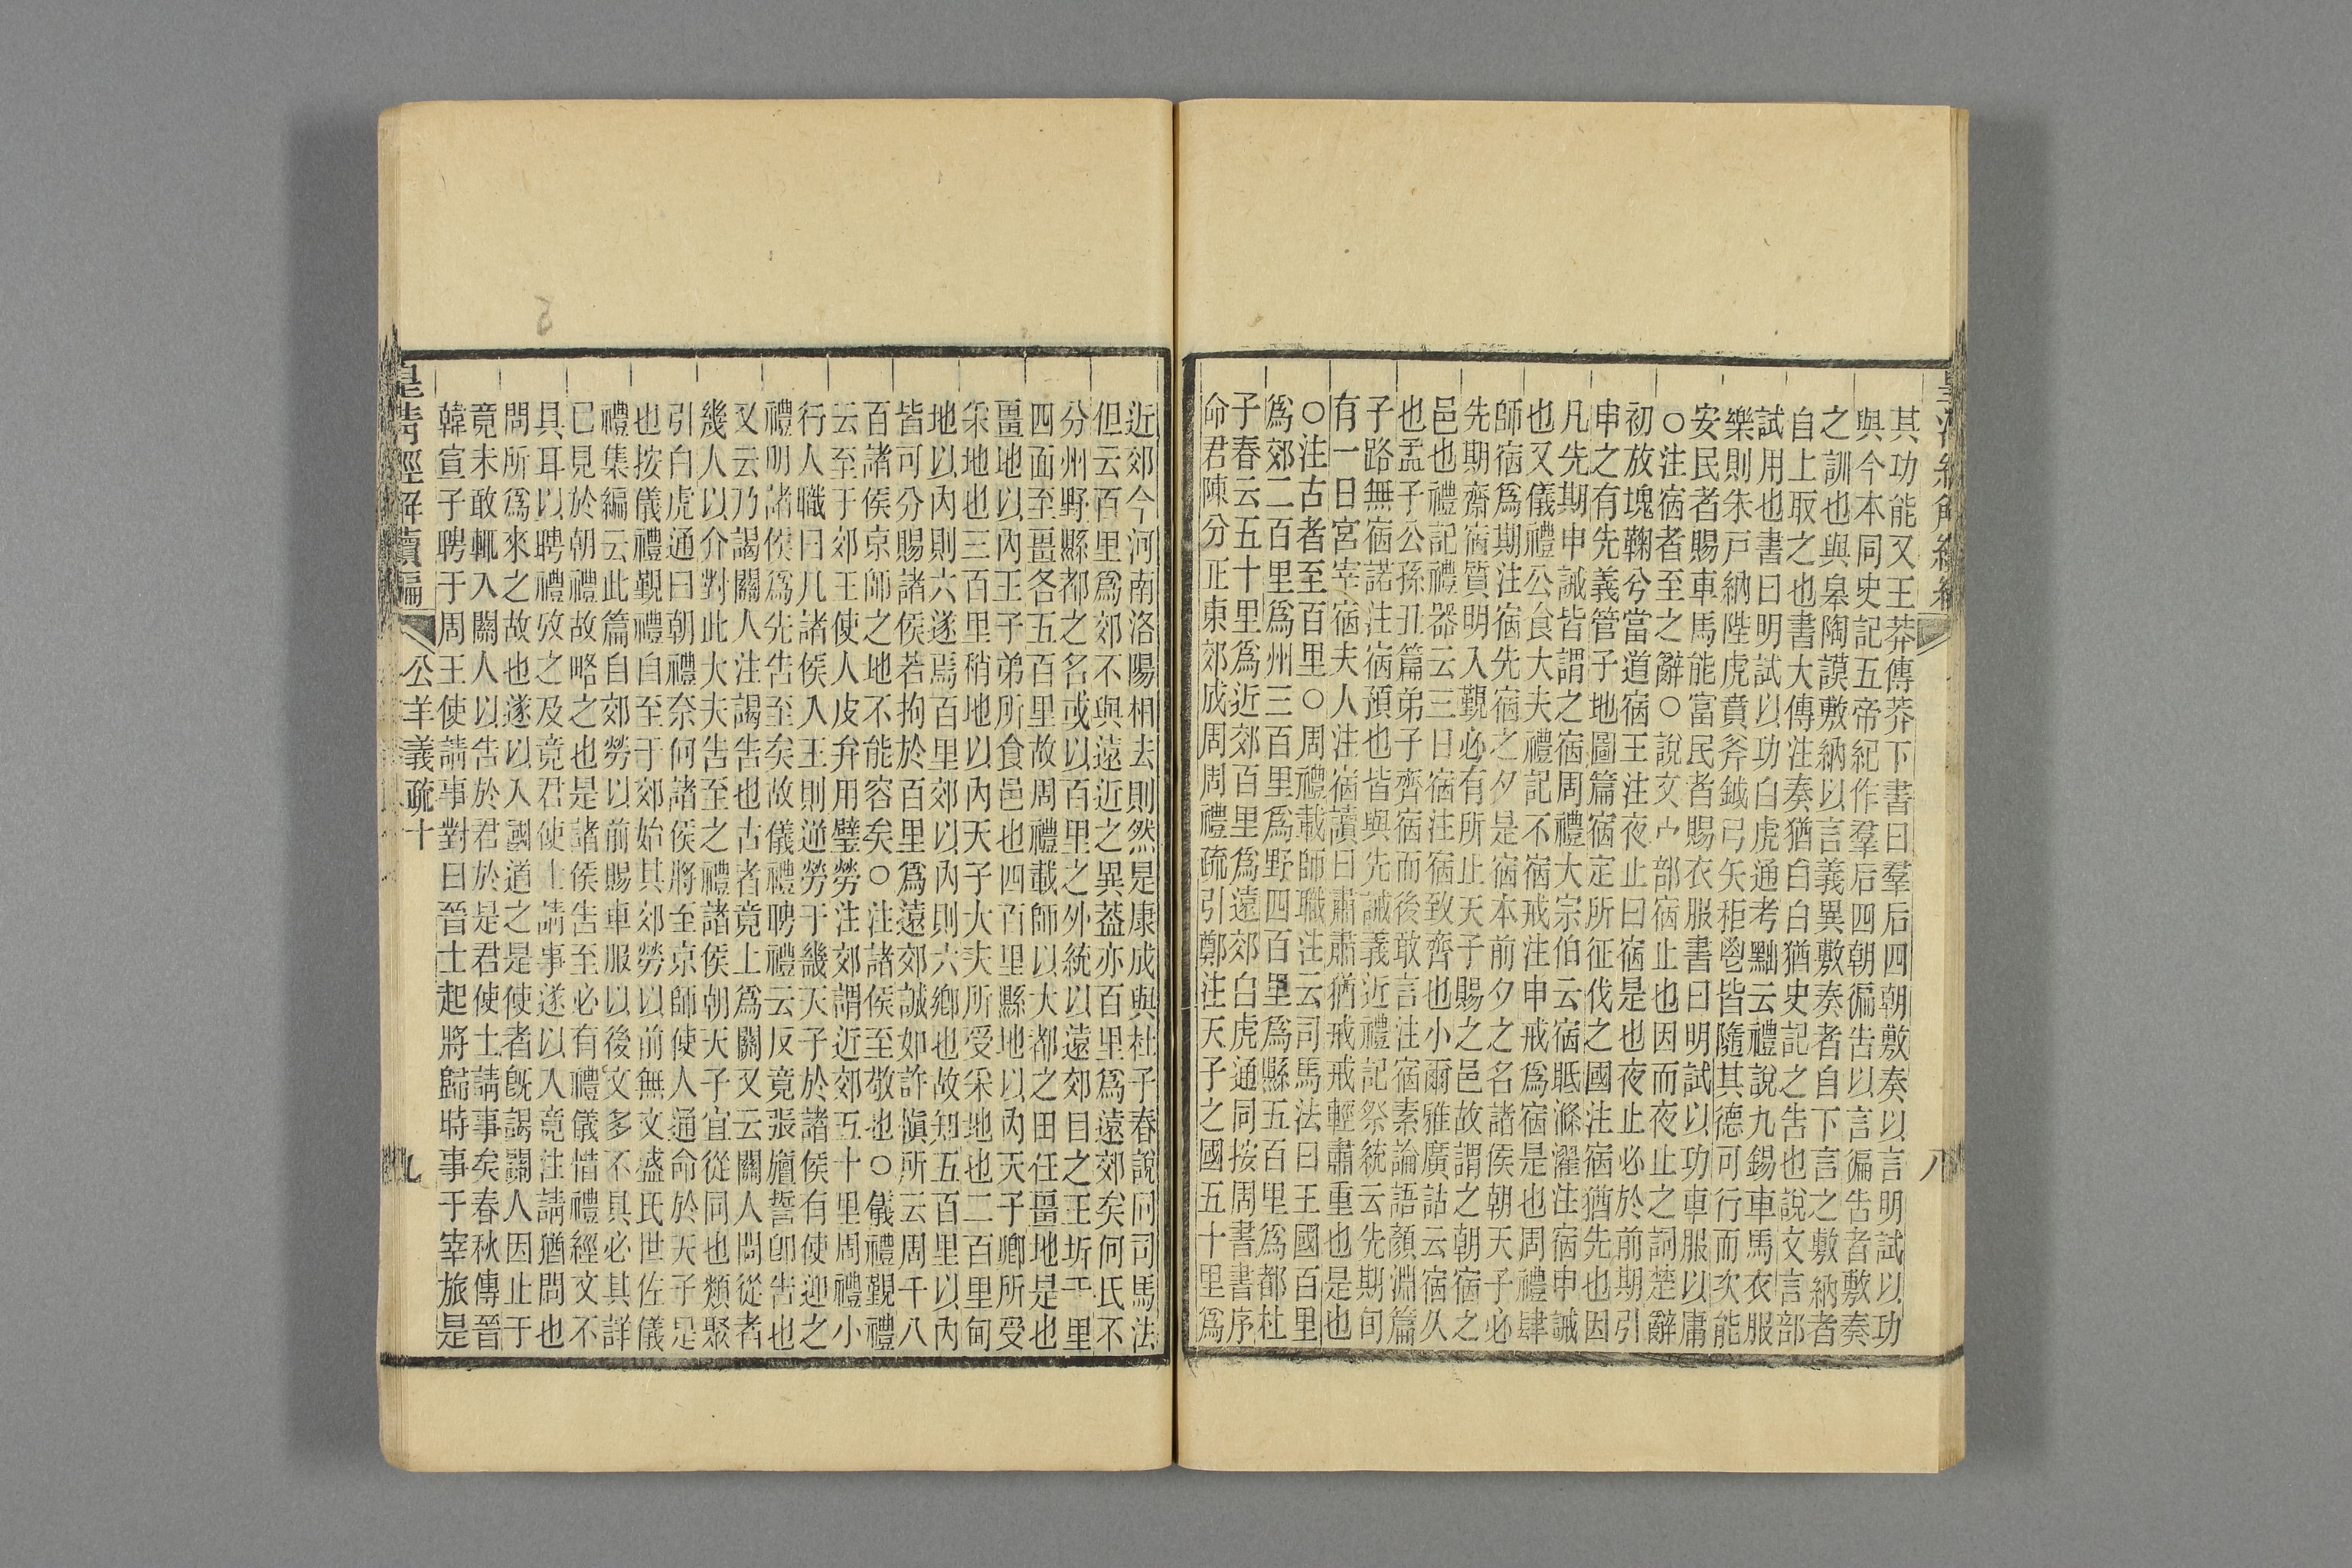 其功能又王莽傳莽下書曰羣后四朝敷奏以言明試以功
與今本同史記五帝紀作羣后四朝徧告以言徧告者敷奏
之訓也與皋陶謨敷納以言義異敷奏者自下言之敷納者
自上取之也書大傳注奏猶白白猶史記之告也說文言部
試用也書曰明試以功白虎通考黜云禮說九錫車馬衣服
樂則朱戸納陛虎賁斧鉞弓矢秬鬯皆隨其德可行而次能
安民者賜車馬能富民者賜衣服書曰明試以功車服以庸
○注宿者至之辭○說文宀部宿止也因而夜止之詞楚辭
初放塊鞠兮當道宿王注夜止曰宿是也夜止必於前期引
申之有先義管子地圖篇宿定所征伐之國注宿猶先也因
凡先期申誡皆謂之宿周禮大宗伯云宿眂滌濯注宿申誡
也又儀禮公食大夫禮記不宿戒注申戒爲宿是也周禮肆
師宿爲期注宿先宿之夕是宿本前夕之名諸侯朝天子必
先期齋宿質明入覲必有所止天子賜之邑故謂之朝宿之
邑也禮記禮器云三日宿注宿致齊也小爾雅廣詁云宿久
也孟子公孫丑篇弟子齊宿而後敢言注宿素論語顏淵篇
子路無宿諾注宿預也皆與先誡義近禮記祭統云先期旬
有一日宮宰宿夫人注宿讀曰肅肅猶戒戒輕肅重也是也
○注古者至百里○周禮載師職注云司馬法曰王國百里
爲郊二百里爲州三百里爲野四百里爲縣五百里爲都杜
子春云五十里爲近郊百里爲遠郊白虎通同按周書書序
命君陳分正東郊成周周禮疏引鄭注天子之國五十里爲
八
近郊今河南洛陽相去則然是康成與杜子春說同司馬法
但云百里爲郊不與遠近之異蓋亦百里爲遠郊矣何氏不
分州野縣都之名或以百里之外統以遠郊目之王圻千里
四面至畺各五百里故周禮載師以大都之田任畺地是也
畺地以內王子弟所食邑也四百里縣地以內天子卿所受
采地也三百里稍地以內天子大夫所受采地也二百里甸
地以內則六遂焉百里郊以內則六鄉也故知五百里以內
皆可分賜諸侯若拘於百里爲遠郊誠如許愼所云周千八
百諸侯京師之地不能容矣○注諸侯至敬也○儀禮覲禮
云至于郊王使人皮弁用璧勞注郊謂近郊五十里周禮小
行人職曰凡諸侯入王則逆勞于畿天子於諸侯有使迎之
禮明諸侯爲先告至矣故儀禮聘禮云反竟張旜誓卽告也
又云乃謁關人注謁告也古者竟上爲關又云關人問從者
幾人以介對此大夫告至之禮諸侯朝天子宜從同也類聚
引白虎通曰朝禮奈何諸侯將至京師使人通命於天子是
也按儀禮覲禮自至于郊始其郊勞以前無文盛氏世佐儀
禮集編云此篇自郊勞以前賜車服以後文多不具必其詳
已見於朝禮故略之也是諸侯告至必有禮儀惜禮經文不
具耳以聘禮攷之及竟君使士請事遂以入竟注請猶問也
問所爲來之故也遂以入國道之是使者旣謁關人因止于
竟未敢輒入關人以告於君於是君使士請事矣春秋傳晉
韓宣子聘于周王使請事對曰晉士起將歸時事于宰旅是
皇清經解續編 公羊義疏十 九